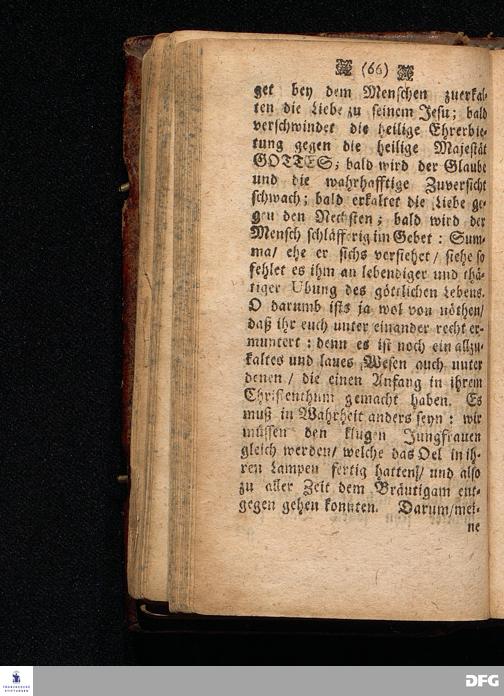 (66)
get bey dem Menschen zuerkal-
ten die Liebe zu seinem Jesu; bald
verschwindet die heilige Ehrerbie-
tung gegen die heilige Majestät
GOTTES; bald wird der Glaube
und die wahrhafftige Zuversicht
schwach; bald erkaltet die Liebe ge-
gen den Nechsten; bald wird der
Mensch schläfferig im Gebet: Sum-
ma/ ehe er sichs versiehet/ siehe so
fehlet es ihm an lebendiger und thä-
tiger Ubung des göttlichen Lebens.
O darumb ists ja wol von nöthen/
daß ihr euch unter einander recht er-
muntert: denn es ist noch ein allzu-
kaltes und laues Wesen auch unter
denen/ die einen Anfang in ihrem
Christenthum gemacht haben. Es
muß in Wahrheit anders seyn: wir
müssen den klugen Jungfrauen
gleich werden/ welche das Oel in ih-
ren Lampen fertig hatten/ und also
zu aller Zeit dem Bräutigam ent-
gegen gehen konnten. Darum/mei-
ne
FRANCKESCHE
STIFTUNGEN
DFG